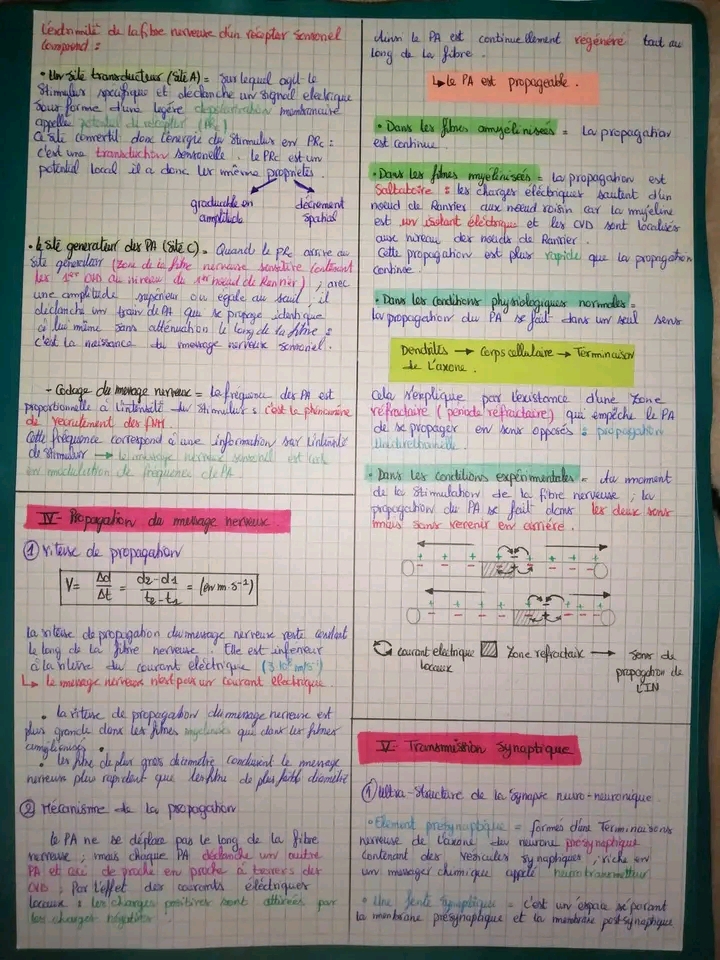 L'extrimité de la fibre nerveuse d'un récéptor sensoriel
comprend :
• Un site transducteur (site A) = sur lequel agit le
stimulus spécifique et déclanche un signal électrique
sous forme d'une légère depolarisation membranaire
appelée potentiel de récepteur (PRc)
Ce site convertit donc l'énergie du stimulus en PRc :
c'est une transduction sensorielle. le PRc est un
potentiel local il a donc les même propriétés.
graduable en
amplitude
décrement
spatial
• le site generateur des PA (site C) = Quand le PRc arrive au
site générateur (zone de la fibre nerveuse sensitive contenant
les 1er CVD au niveau du 1er nœud de Ranvier) ; avec
une amplitude superieur ou égale au seuil, il
déclanche un train de PA qui se propage identique
à lui même sans atténuation le long de la fibre :
c'est la naissance du message nerveux sensoriel.
- Codage du message nerveux = la fréquence des PA est
proportionelle à l'intensité du stimulus : c'est le phénomène
de recrutement des FNM
Cette fréquence correspond à une information sur l'intensité
de stimulus → le message nerveux sensoriel est codé
en modulation de fréquence de PA
IV- Propagation du message nerveux
① vitesse de propagation
V= Δd/Δt = d2-d1/t2-t1 = (en m.s-1)
la vitesse de propagation du message nerveux reste constant
le long de la fibre nerveuse. Elle est inferieur
à la vitesse du courant électrique (3.10⁸ m/s)
↳ le message nerveux n'est pas un courant électrique.
• la vitesse de propagation du message nerveux est
plus grande dans les fibres myélinisés que dans les fibres
amyélinisés.
• les fibre de plus gros diametre conduisent le message
nerveux plus rapidement que les fibre de plus faible diametre
② Mécanisme de la propagation
le PA ne se déplace pas le long de la fibre
nerveuse ; mais chaque PA déclanche un autre
PA et ceci de proche en proche à travers des
CVD ; Par l'effet des courants éléctriques
locaux : les charges positives sont attirées par
les charges négatives.
Ainsi le PA est continuellement régénéré tout au
long de la fibre.
↳ le PA est propageable.
• Dans les fibres amyélinisées = la propagation
est continue.
• Dans les fibres myélinisées = la propagation est
Saltatoire : les charges éléctriques sautent d'un
noeud de Ranvier aux noeud voisin car la myéline
est un isolant éléctrique et les CVD sont localisés
aux niveau des noeuds de Ranvier.
Cette propagation est plus rapide que la propagation
continue.
• Dans les conditions physiologiques normales =
la propagation du PA se fait dans un seul sens
Dendrites → Corps cellulaire → Terminaison
de l'axone.
Cela s'explique par l'existance d'une zone
réfractaire (période réfractaire) qui empêche le PA
de se propager en sens opposés : propagation
Unidirectionelle.
• Dans les conditions expérimentales = du moment
de la stimulation de la fibre nerveuse ; la
propagation du PA se fait dans les deux sens
mais sans revenir en arrière.
+ + + - + + + +
- - - + - - - -
+ + + + - + + +
- - - - + - - -
courant electrique
locaux
Zone refractaire
→ Sens de
propagation de
L'IN
V- Transmission synaptique
① Ultra-structure de la synapse neuro-neuronique.
• Elément présynaptique = formés d'une Terminaisons
nerveuse de l'axone du neurone présynaptique
contenant des vesicules synaptiques ; riche en
un messager chimique appelé neurotransmetteur.
• Une fente synaptique = c'est un espace séparant
la membrane présynaptique et la membrane post-synaptique